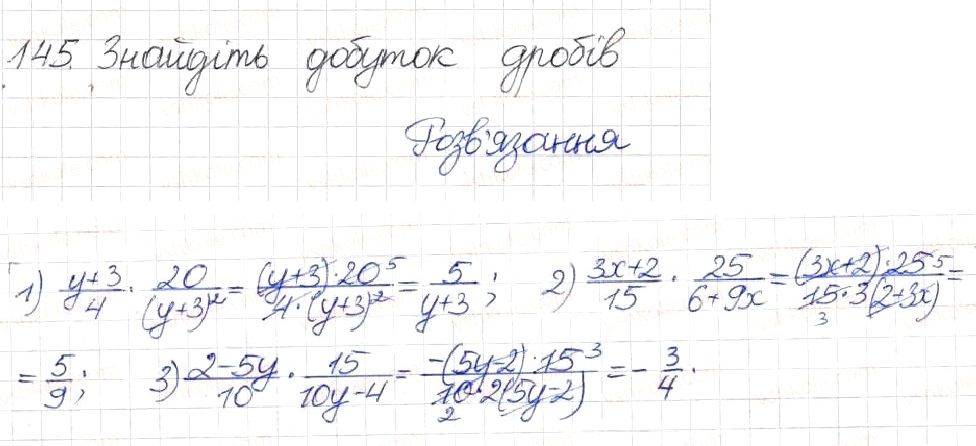 145. Знайдіть добуток дробів
Розв'язання
1) (y+3)/4 · 20/(y+3)² = ((y+3)·20⁵)/(4·(y+3)²) = 5/(y+3); 2) (3x+2)/15 · 25/(6+9x) = ((3x+2)·25 5)/(15·3(2+3x) 3) =
= 5/9; 3) (2-5y)/10 · 15/(10y-4) = (-(5y-2)·15 3)/(10·2(5y-2) 2) = - 3/4.